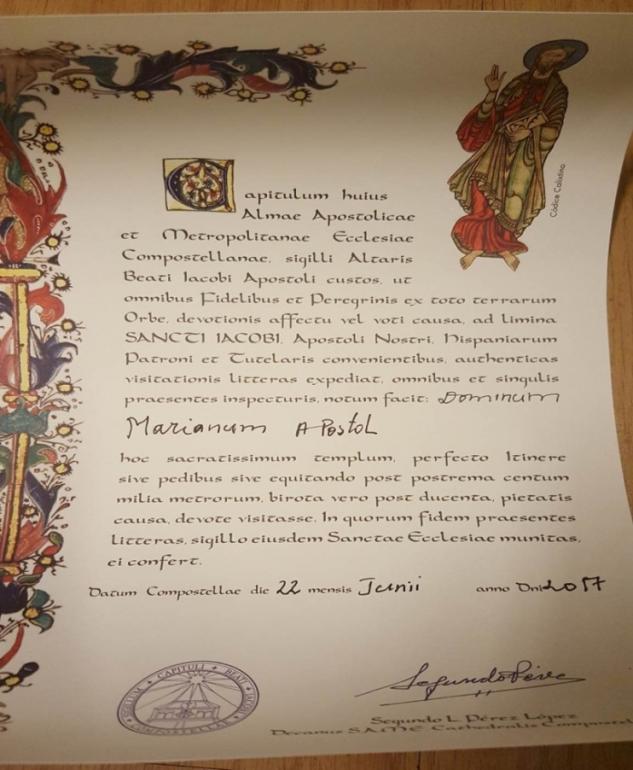 Códice Calixtino
Capitulum huius
Almae Apostolicae
et Metropolitanae Ecclesiae
Compostellanae, sigilli Altaris
Beati Iacobi Apostoli custos, ut
omnibus Fidelibus et Peregrinis ex toto terrarum
Orbe, devotionis affectu vel voti causa, ad limina
SANCTI IACOBI, Apostoli Nostri, Hispaniarum
Patroni et Tutelaris convenientibus, authenticas
visitationis litteras expediat, omnibus et singulis
praesentes inspecturis, notum facit: Dominum
Marianum APostol
hoc sacratissimum templum, perfecto Itinere
sive pedibus sive equitando post postrema centum
milia metrorum, birota vero post ducenta, pietatis
causa, devote visitasse. In quorum fidem praesentes
litteras, sigillo eiusdem Sanctae Ecclesiae munitas,
ei confert.
Datum Compostellae die 22 mensis Junii anno Dni 2017
CAPITULI BEATI COMPOSTELLAE
Segundo L. Pérez López
Decanus S.A.M.E. Cathedralis